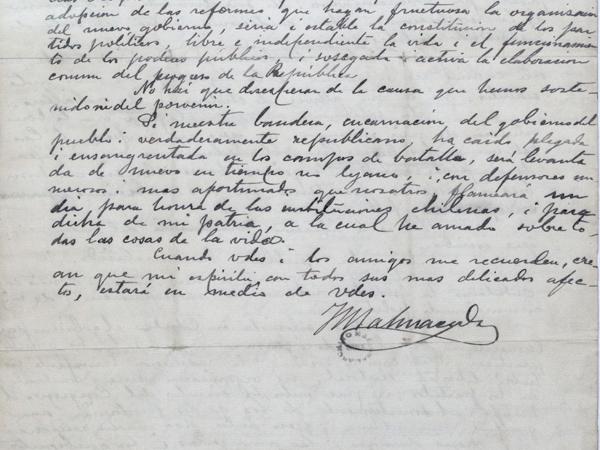 adopcion de las reformas que hagan fructuosa la organizacion
del nuevo gobierno, seria i estable la constitucion de los par-
tidos políticos, libre e independiente la vida i el funcionamien-
to de los poderes públicos i sosegada i activa la elaboracion
comun del progreso de la República.
No hai que desesperar de la causa que hemos soste-
nido ni del porvenir.
Si nuestra bandera, encarnacion del gobierno del
pueblo i verdaderamente republicano, ha caido plegada
i ensangrentada en los campos de batalla, será levanta
da de nuevo en tiempo no lejano, i con defensores nu
merosos i mas afortunados que nosotros, flameará un
dia para honra de las instituciones chilenas, i para
dicha de mi patria, a la cual he amado sobre to-
das las cosas de la vida.
Cuando Udes i los amigos me recuerden, cre-
an que mi espíritu, con todos sus mas delicados afec-
tos, estará en medio de Udes.
JM Balmaceda